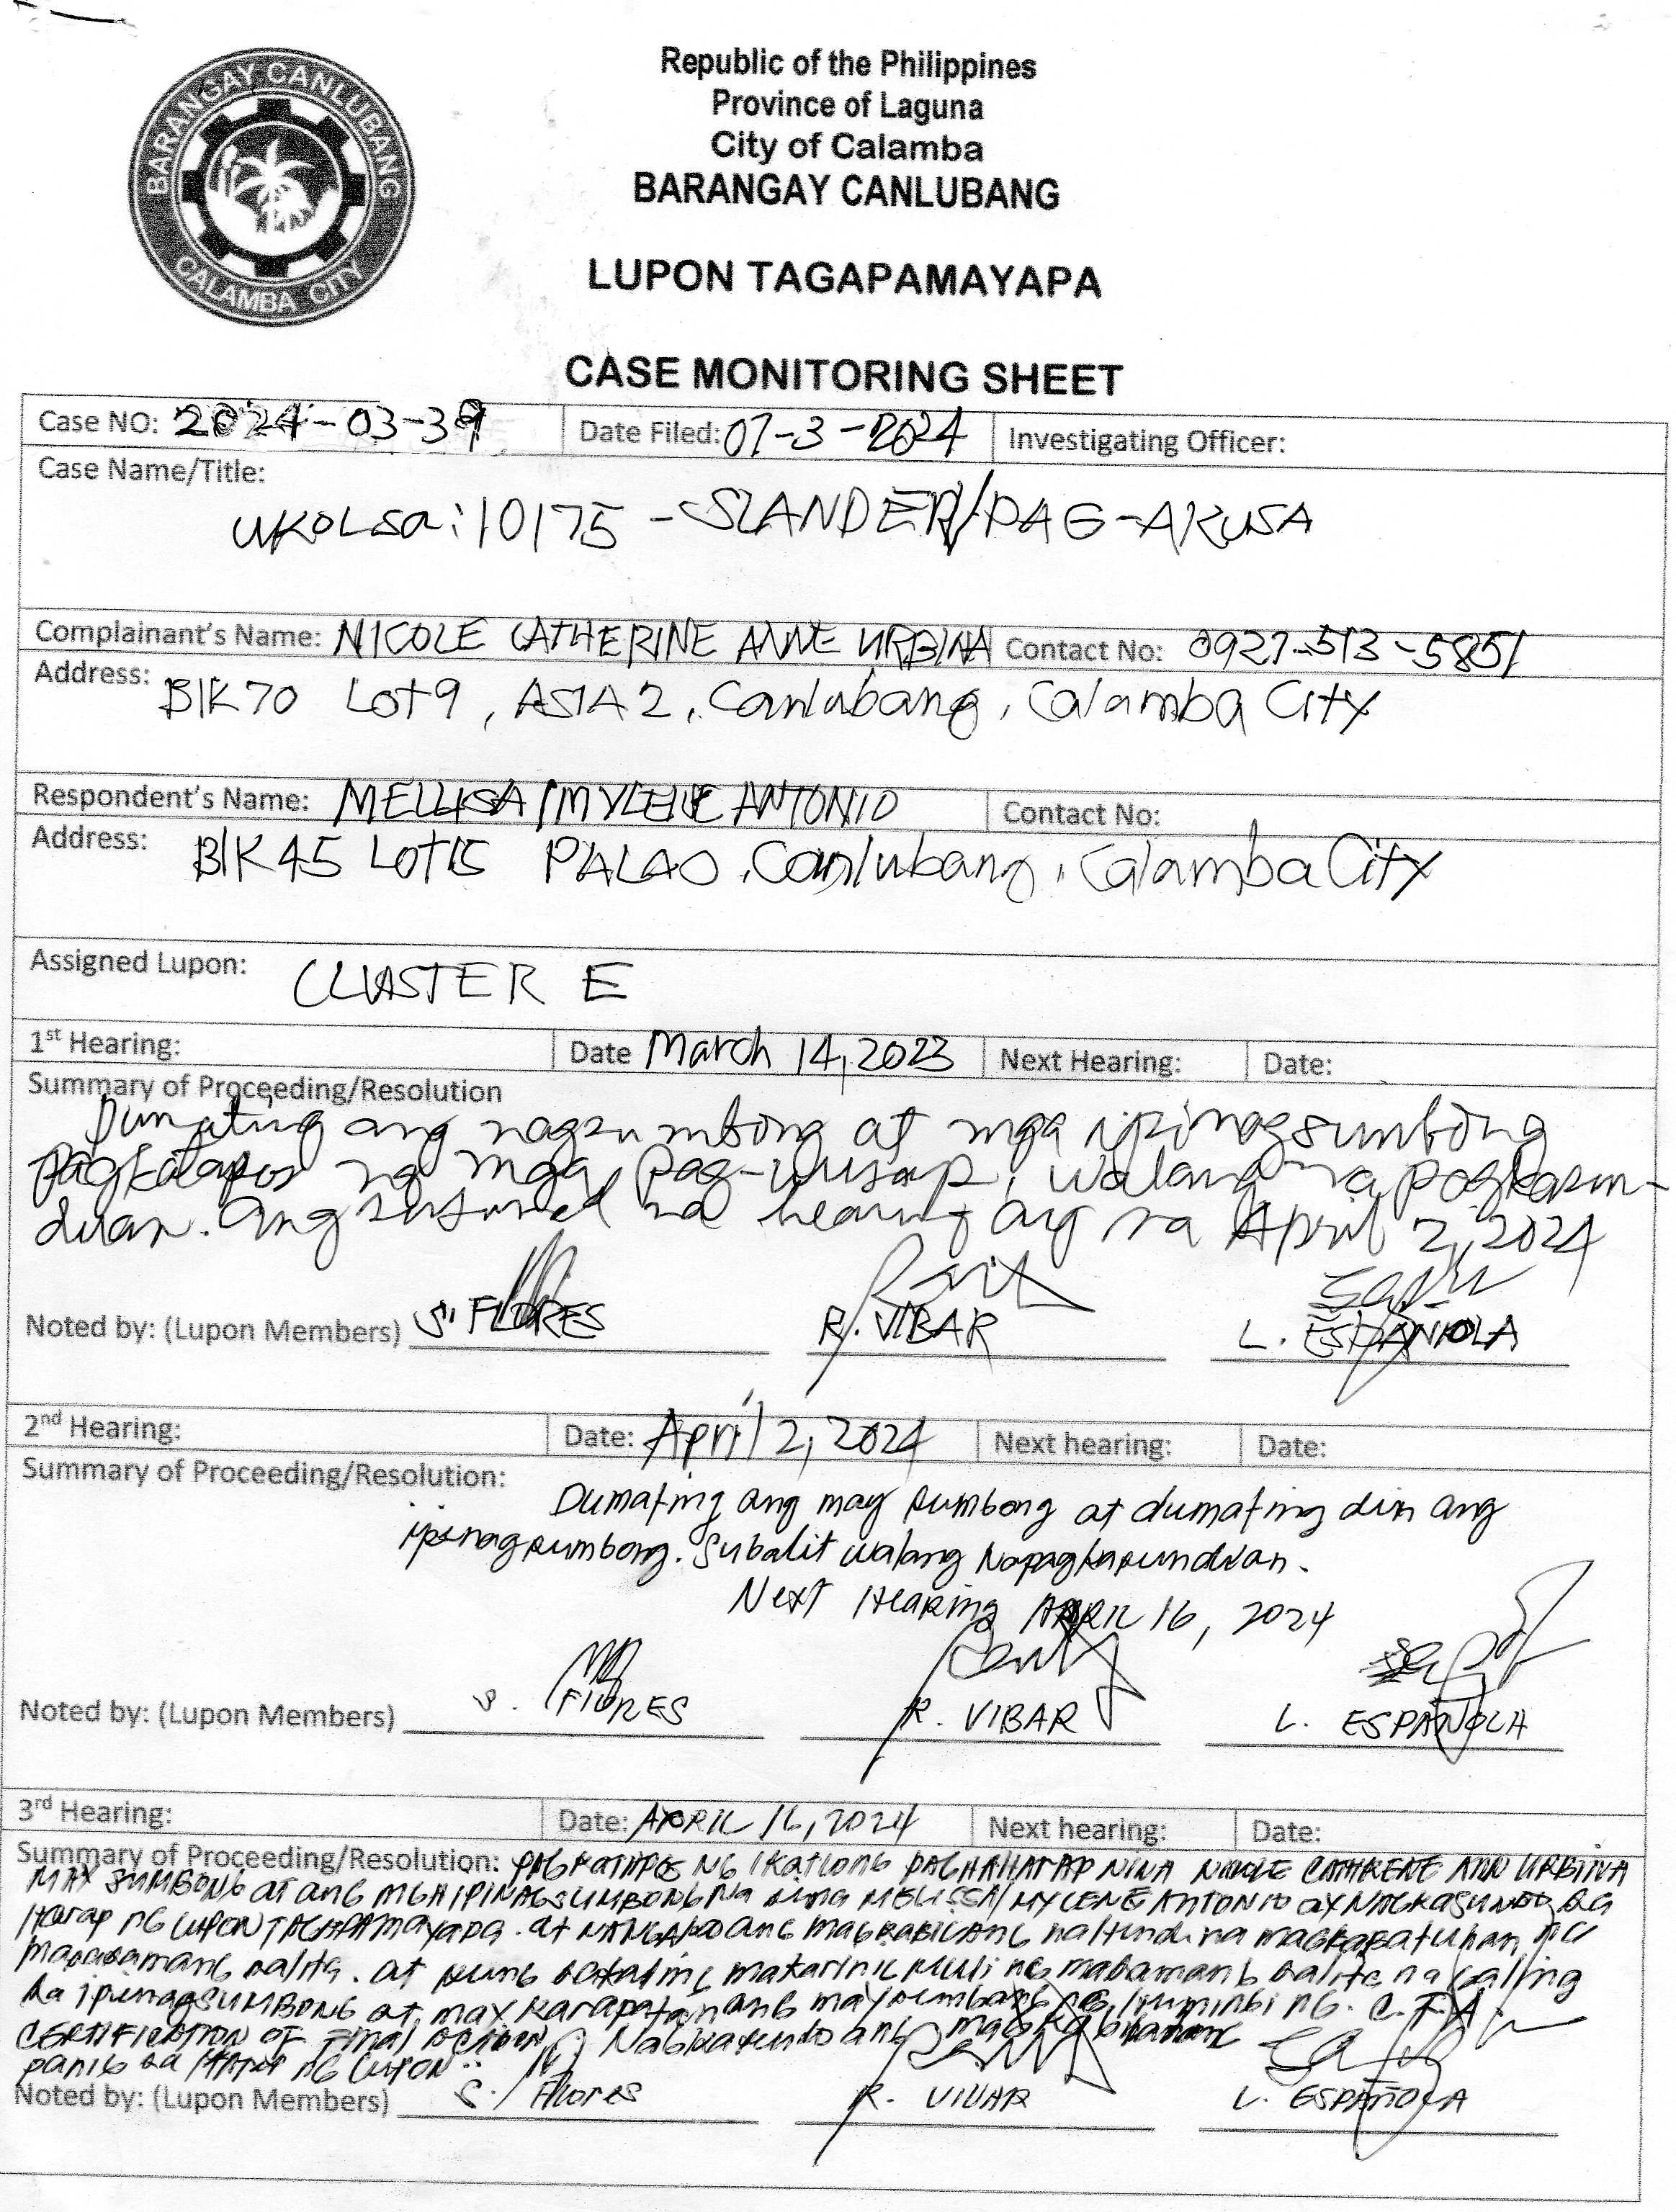 BARANGAY CANLUBANG
CALAMBA CITY
Republic of the Philippines
Province of Laguna
City of Calamba
BARANGAY CANLUBANG
LUPON TAGAPAMAYAPA
CASE MONITORING SHEET
Case NO: 2024-03-39 Date Filed: 07-3-2024 Investigating Officer:
Case Name/Title:
UKOLsa: 10175 - SLANDER/PAG-AKUSA
Complainant's Name: NICOLE CATHERINE ANNE URBINA Contact No: 0927-513-5851
Address: BlK 70 Lot 9, ASIA 2, Canlubang, Calamba City
Respondent's Name: MELLISA/MYLENE ANTONIO Contact No:
Address: BlK 45 Lot 15 PALAO, Canlubang, Calamba City
Assigned Lupon: CLUSTER E
1st Hearing: Date March 14, 2023 Next Hearing: Date:
Summary of Proceeding/Resolution
Dumating ang nagsumbong at mga ipinagsumbong
pagkatapos ng mga pag-uusap, walang napagkasun-
duan. Ang na hearing ay sa April 2, 2024
Noted by: (Lupon Members) S. FLORES R. VIBAR L. ESPAÑOLA
2nd Hearing: Date: April 2, 2024 Next hearing: Date:
Summary of Proceeding/Resolution:
Dumating ang may sumbong at dumating din ang
ipinagsumbong. Subalit walang Napagkasunduan.
Next Hearing APRIL 16, 2024
Noted by: (Lupon Members) S. FLORES R. VIBAR L. ESPAÑOLA
3rd Hearing: Date: APRIL 16, 2024 Next hearing: Date:
Summary of Proceeding/Resolution: PAGKATAPOS NG IKATLONG PAGHAHARAP NINA NICOLE CATHRENE ANN URBINA
MAY SUMBONG at ANG MGA IPINAGSUMBONG Na sina MELISSA/MYLENE ANTONIO ay NAGKASUNDO sa
Harap NG LUPON TAGAPAMAYAPA. at NANGAKO ANG MAGKABILANG na
masasamang salita. at kung makarinig Muli ng masamang salita na galing
sa ipinagSUMBONG at may karapatan ang may sumbong na humingi NG. C.F.A.
CERTIFICATION OF Final Action. Nagkasundo ang magkabilang
panig sa HARAP NG LUPON..
Noted by: (Lupon Members) S. Flores R. VIBAR L. ESPAÑOLA